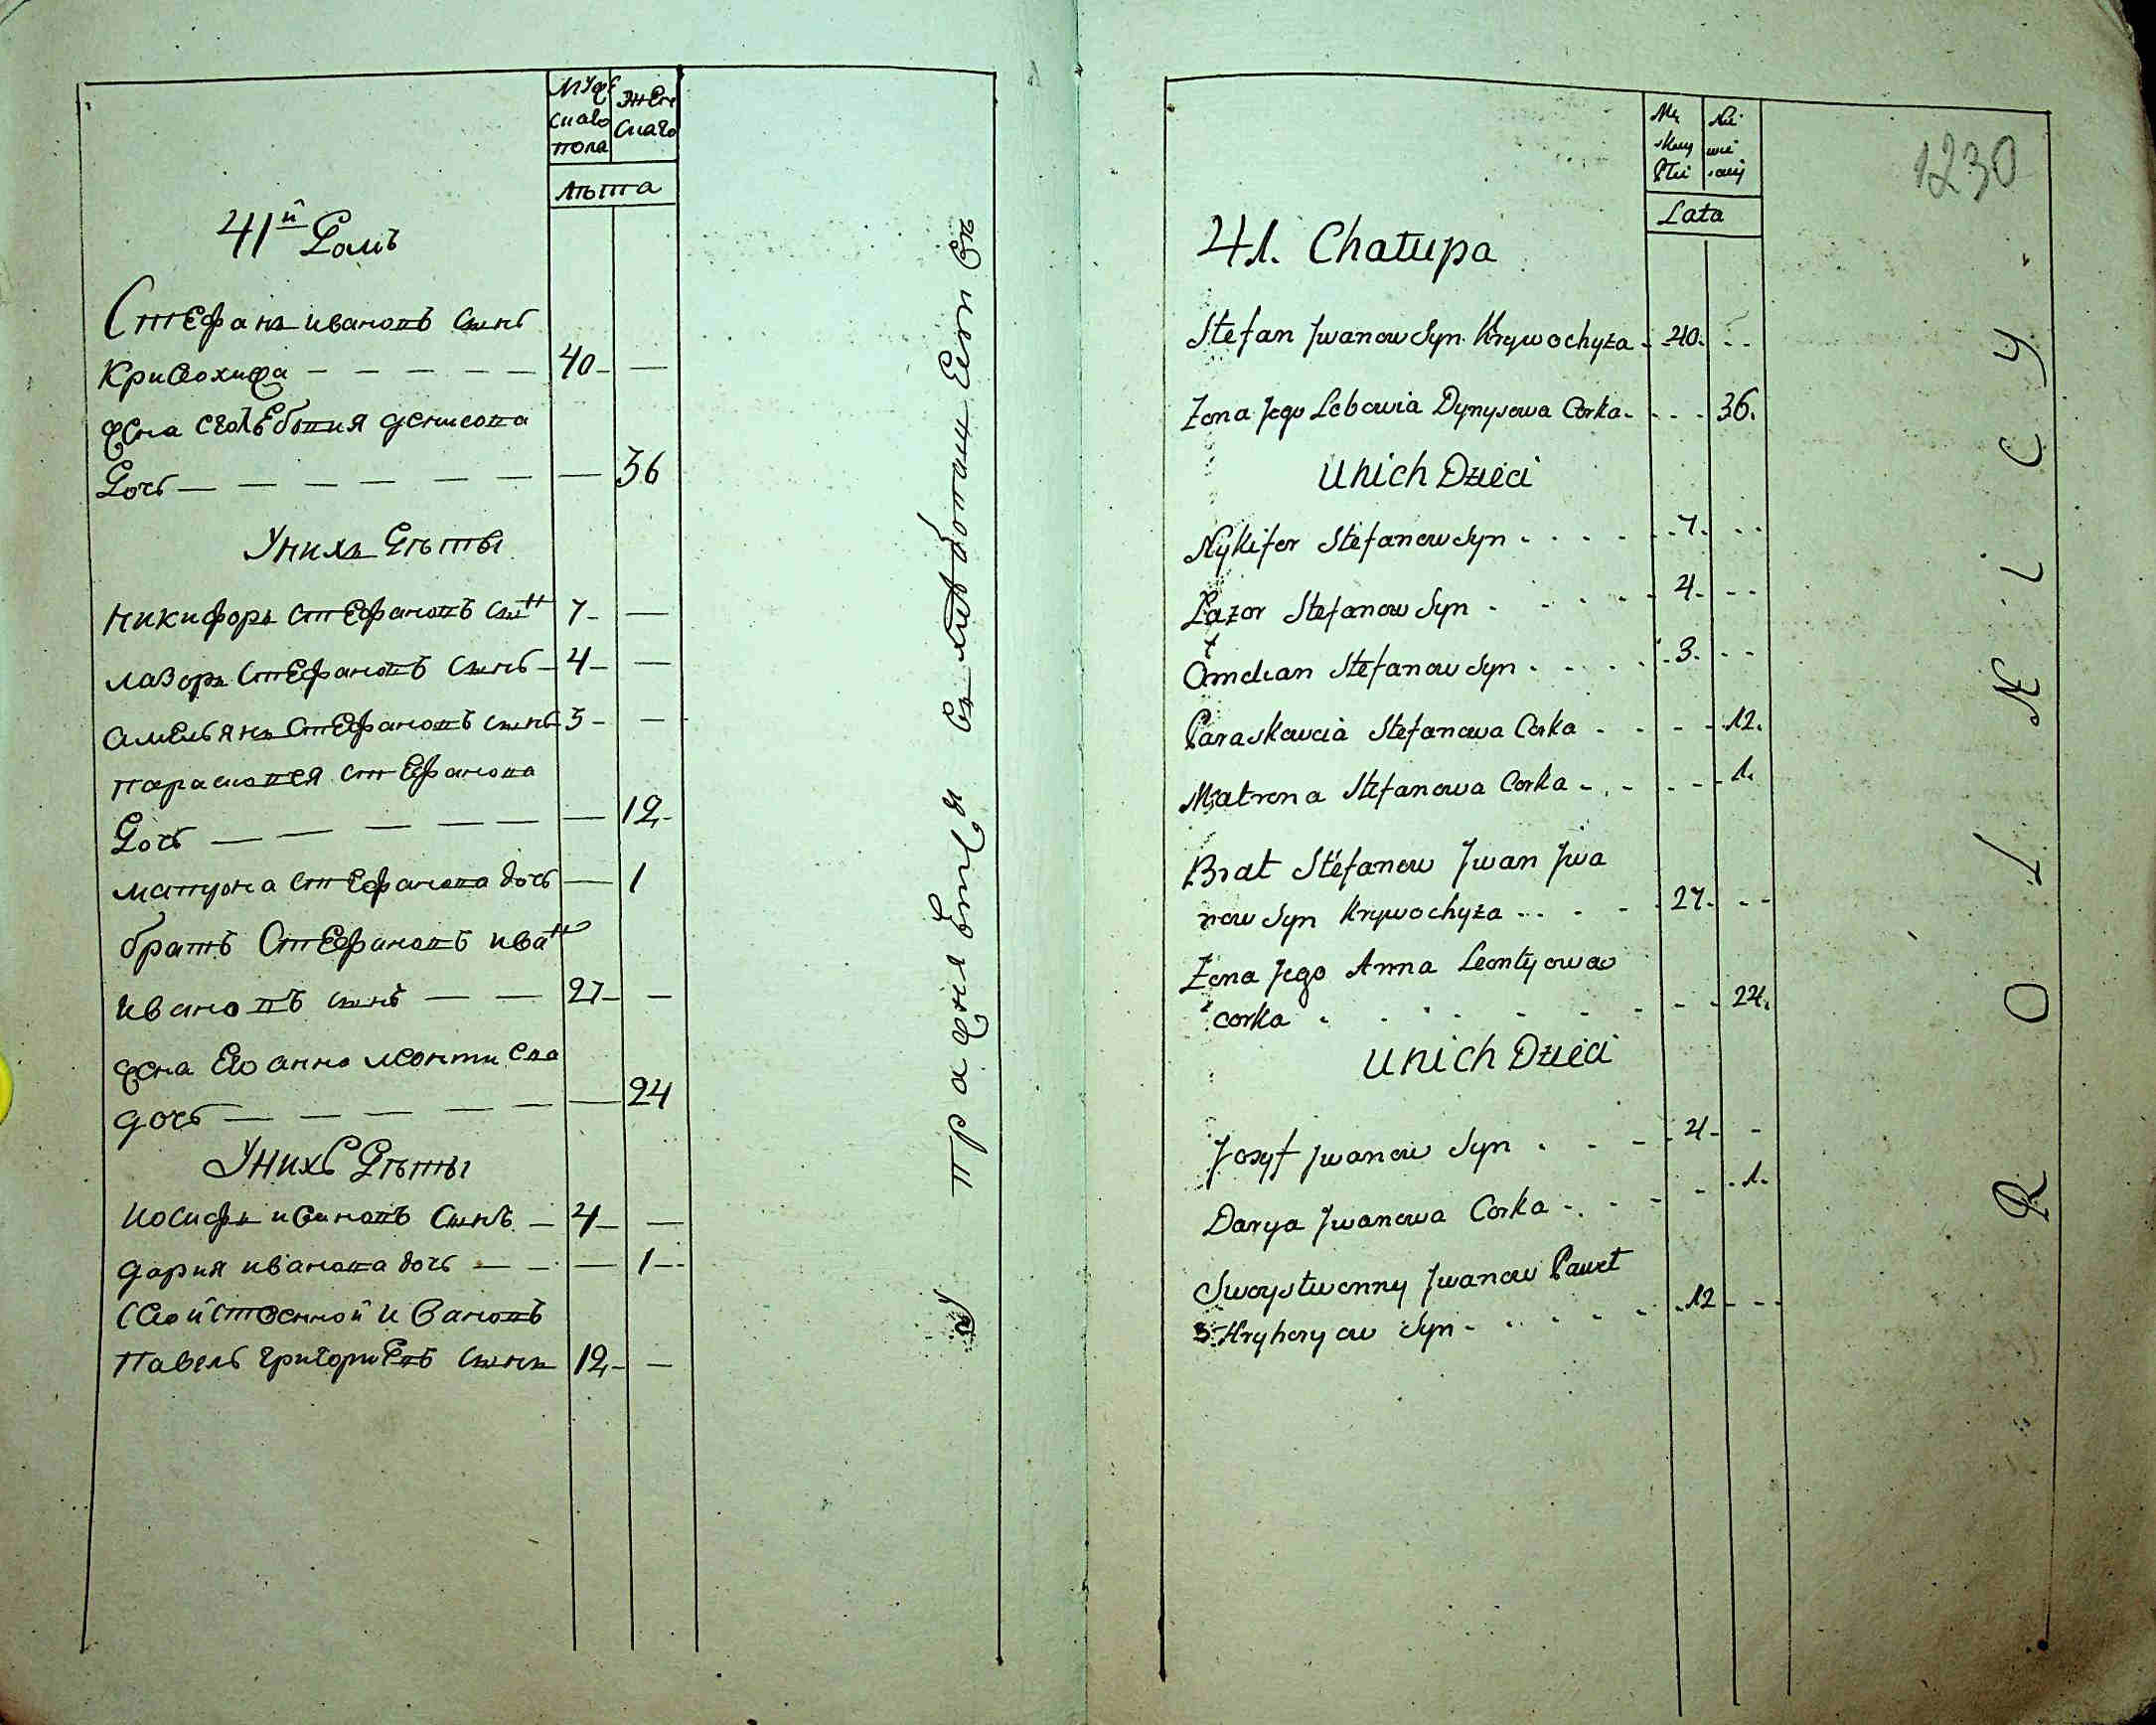 Мужескаго пола
Женскаго
Лѣта
41й Домъ
Стефанъ Ивановъ сынъ
Кривохижа — — — — — 40 —
жена его Лебовия Денисова
Дочь — — — — — — — 36
У нихъ Дѣты
Никифоръ Стефановъ сын 7 —
Лазоръ Стефановъ сынъ — 4 —
Амельянъ Стефановъ сынъ 3 —
Парасковея Стефанова
Дочь — — — — — — 12
Матрона Стефанова дочь — 1
братъ Стефановъ Иван
Ивановъ сынъ — — 27 —
жена Его Анна Леонтиева
дочь — — — — — — 24
У нихъ Дѣты
Иосифъ Ивановъ сынъ — 4 —
Дария Иванова дочь — — — 1
Свойственной Ивановъ
Павелъ Григориевъ сынъ 12 —
Męskiey Płci
Niewieściey
Lata
1230
41. Chałupa
Stefan Jwanow Syn Krywochyża - 40. - -
Zona Jego Lebowia Dynysowa Corka - - - 36.
U nich Dzieci
Nykifor Stefanow Syn - - - - 7. - -
Łazor Stefanow Syn - - - - 4. - -
Omelian Stefanow Syn - - - - 3. - -
Paraskowia Stefanowa Corka - - - - 12.
Matrona Stefanowa Corka - - - - - 1.
Brat Stefanow Jwan Jwa
now Syn Krywochyża - - - - 27. - -
Zona Jego Anna Leontyowa
corka - - - - - - - - 24.
U nich Dzieci
Jozyf Jwanow Syn - - - 4 - -
Darya Jwanowa Corka - - - - 1.
Swoystwenny Jwanow Paweł
Hryhoryow Syn - - - - - 12 - - -
ROLNICY